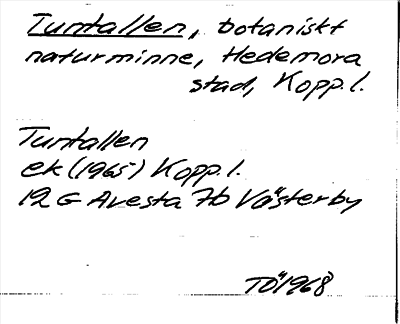 Tuntallen, botaniskt
naturminne, Hedemora
stad, Kopp. l.
Tuntallen
ek (1965) Kopp. l.
12 G Avesta 7b Västerby
TÖ 1968